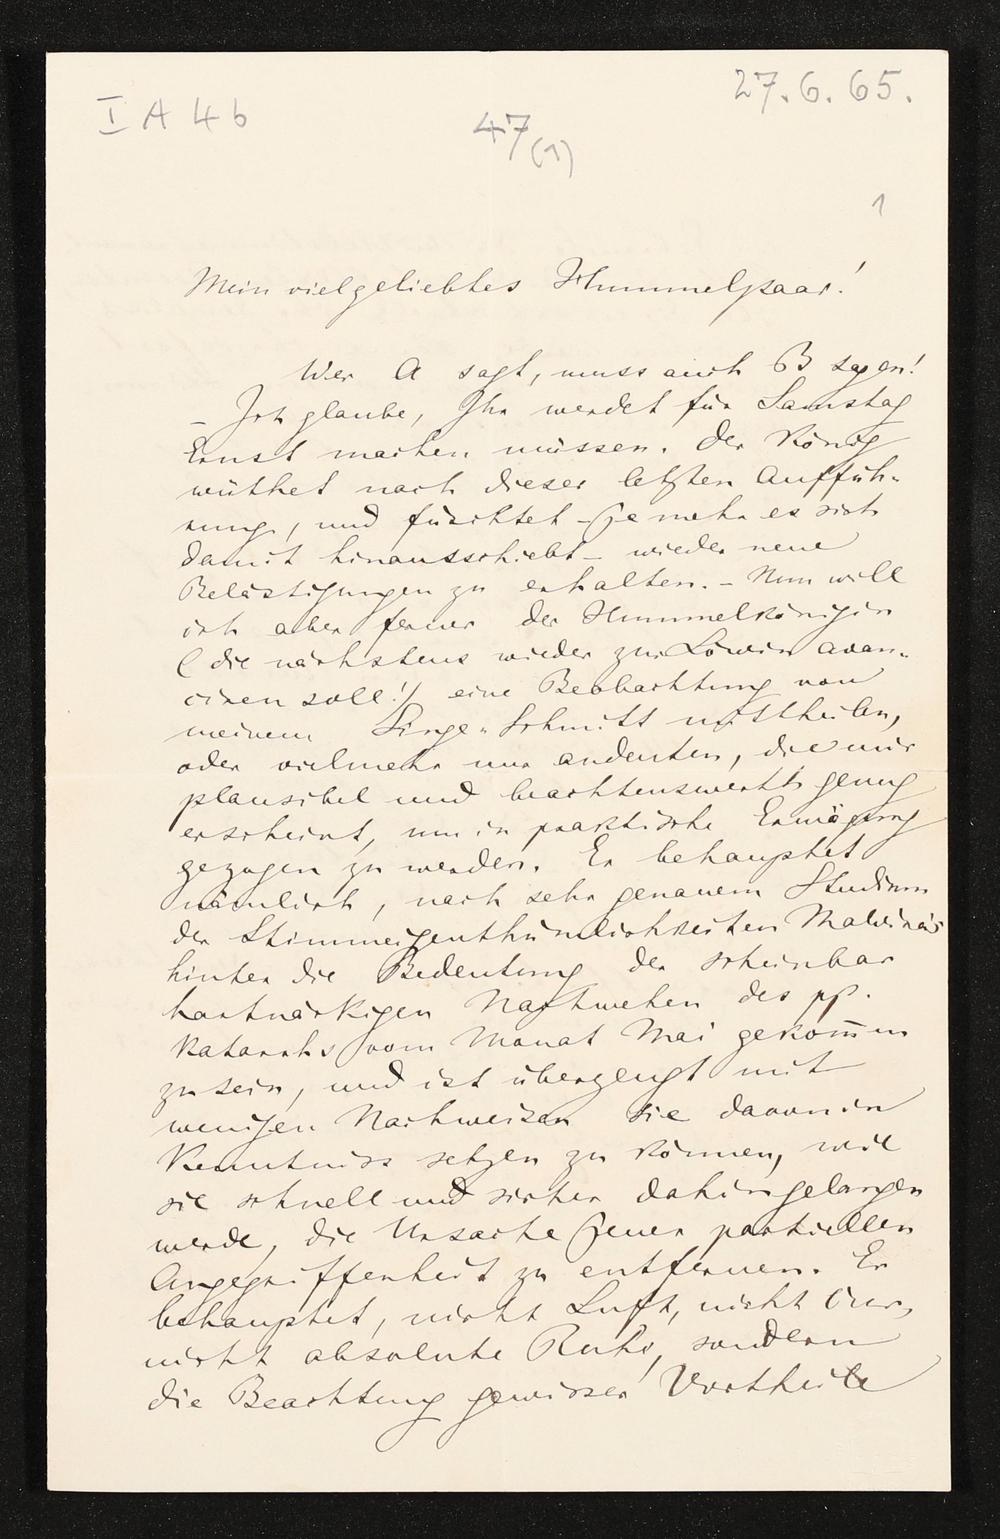 27.6.65.
I A 4 b
47(1)
1
Mein vielgeliebtes Hummelpaar!
Wer A sagt, muss auch B sagen!
– Ich glaube, Ihr werdet für Samstag
Ernst machen müssen. Der König
wüthet nach dieser letzten Auffüh-
rung, und fürchtet – je mehr es sich
damit hinausschiebt – wieder neue
Belästigungen zu erhalten. – Nun will
ich aber ferner der Hummelkönigin
(die nächstens wieder zur Löwin avan-
ciren soll!) eine Beobachtung von
meinem Singe-Schmitt mittheilen,
oder vielmehr nur andeuten, die mir
plausibel und beachtenswerth genug
erscheint, um in praktische Erwägung
gezogen zu werden. Er behauptet
nämlich, nach sehr genauem Studium
der Stimmeigenthümlichkeiten Malvina's
hinter die Bedeutung der scheinbar
hartnäckigen Nachwehen des pp.
Katarrhs vom Monat Mai gekommen
zu sein, und ist überzeugt mit
wenigen Nachweisen sie davon in
Kenntniss setzen zu können, wie
sie schnell und sicher dahin gelangen
werde, die Ursache jener partiellen
Angegriffenheit zu entfernen. Er
behauptet, nicht Luft, nicht Cur,
nicht absolute Ruhe, sondern
die Beachtung gewisser Vortheile